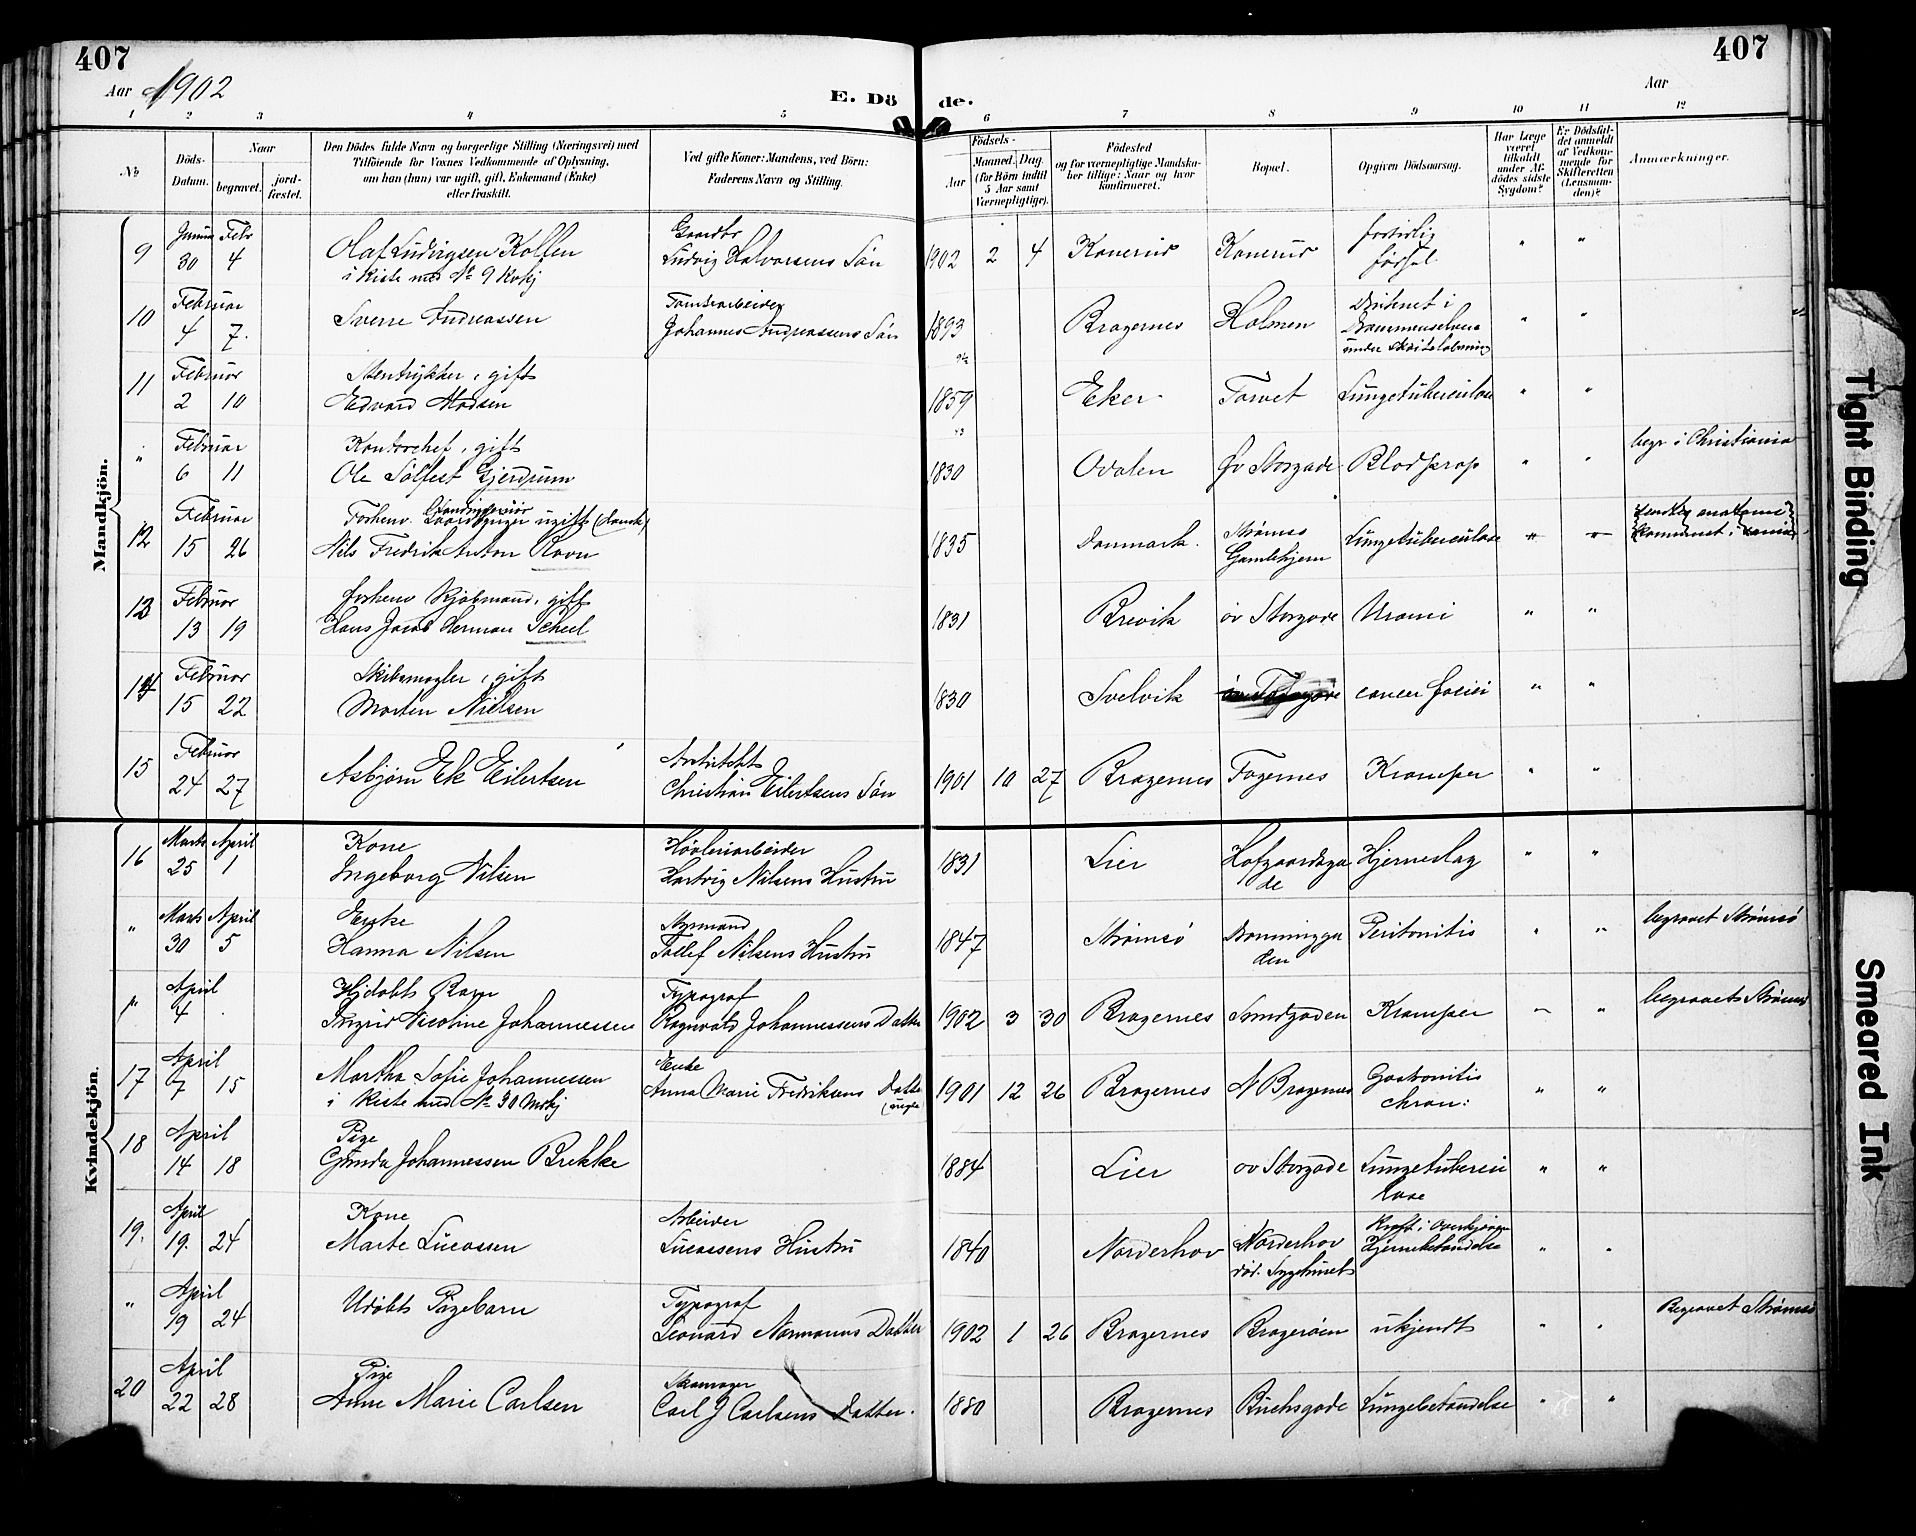 407
407
Aar 1902
E. Dö de.
Aar
1 2 3 4 5 6 7 8 9 10 11 12
No
Döds-Datum.
Naar
begravet.
jord-fæstet.
Den Dødes fulde Navn og borgerlige Stilling (Næringsvei) med
Tilföiende for Voxnes Vedkommende af Oplysning,
om han (hun) var ugift, gift, Enkemand (Enke)
eller fraskilt.
Ved gifte Koner: Mandens, ved Börn:
Faderens Navn og Stilling.
Födsels-
Aar
Maaned. Dag.
(for Börn indtil
5 Aar samt
Værnepligtige).
Födested
og for værnepligtige Mandska-
ber tillige: Naar og hvor
konfirmeret.
Bopæl.
Opgiven Dödsaarsag.
Har Læge
været
tilkaldt
under Af-
dödes sidste
Sygdom?
Er Dödsfal-
det anmeldt
af Vedkom-
mende for
Skifteretten
(Lensman-
den)?
Anmærkninger.
Mandkjön.
9 Januar 30 Febr 4 Olaf Ludvigsen
i Kiste med No 9
Ludvig Halvorsens Sön 1902 2 4 Konerud Konerud
10 Februar 4 7. Sverre Andreassen
Tomtearbeider
Johannes Andreassens Sön 1893 Bragernes Holmen Druknet i
Drammenselven
under Skøiteløbning
11 Februar 2 10 Stentrykker, gift
Edvard Madsen 1859 Eker Torvet Lungetuberculose
" Februar 6 11 Kontorchef, gift
Ole Solfest Gjerdrum 1830 Odalen Øv Storgade Blodprop begr i Christiania
12 Februar 15 26 Forhenv. ugift (dansk)
Nils Fredrik Anton Ravn 1835 Danmark. Strømsø
Gamlehjem Lungetuberculose
13 Februar 13 19 forhenv Kjøbmand, gift
Hans Jacob Herman Scheel 1831 Brevik öv Storgade Uræmi
14 Februar 15 22 Skibsmægler, gift
Morten Nielsen 1830 Svelvik cancer faciei
15 Februar 24 27 Asbjørn Ek Eilertsen
Arkitekt
Christian Eilertsens Sön 1901 10 27 Bragernes Fagernes Kramper
Kvindekjön.
16 Marts 25 April 1 Kone
Ingeborg Nilsen
Høvleriarbeider
Hartvig Nilsens Hustru 1831 Lier Hofgaardsga
de Hjerneslag
" Marts 30 April 5 Enke
Hanna Nilsen
Styrmand
Tollef Nilsens Hustru 1847 Strømsö Dronninggaden Peritonitis begravet Strømsö
" April 4 Hjdøbt Barn
Ingrid Nicoline Johannessen
Typograf
Ragnvald Johannessens Datter 1902 3 30 Bragernes Smedgaden Kramper begravet Strømsö
17 April 7 15 Martha Sofie Johannessen
i Kiste med No 30
Enke
Anna Marie Fredriksens Datter
(uægte) 1901 12 26 Bragernes N Bragernes Gastronitis
chron:
18 April 14 18 Pige
Gunda Johannessen Brekke 1884 Lier öv Storgade Lungetubercu
lose
19. April 19. 24 Kone
Marte Lucassen
Arbeider
Lucassens Hustru 1840 Norderhov Norderhov
död. Sygehuset
Hjernebetændelse
" April 19 24 Udöbt Pigebarn
Typograf
Leonard Normanns Datter 1902 1 26 Bragernes Bragerøen ukjendt Begravet Strømsö
20 April 22 28 Pige
Anne Marie Carlsen
Skomager
Carl J Carlsens Datter. 1880 Bragernes Buchsgade Lungebetændelse
Tight Binding
Smeared Ink